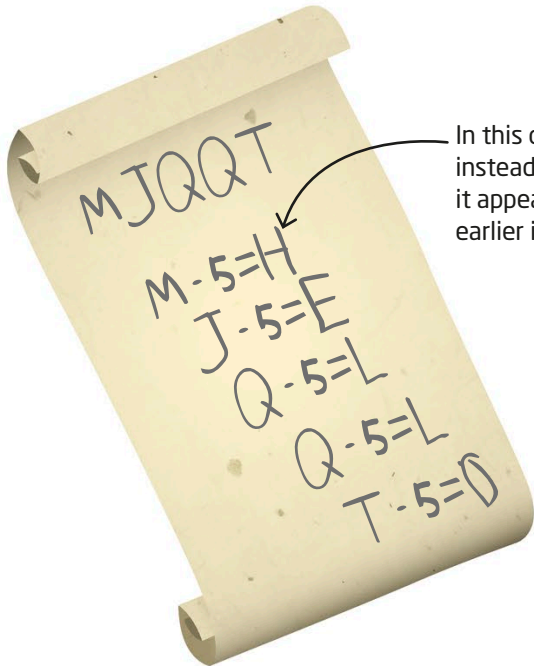 MJQQT
M-5=H
J-5=E
Q-5=L
Q-5=L
T-5=O
In this
instead
it appea
earlier i